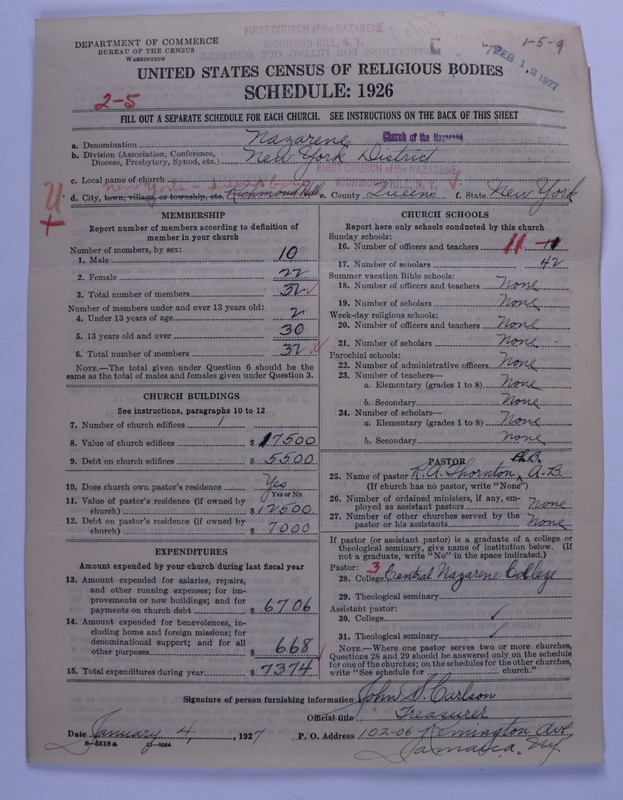 FIRST CHURCH of the NAZARENE
RICHMOND HILL, N. Y.
1-5-9
FEB 12 1927
DEPARTMENT OF COMMERCE
BUREAU OF THE CENSUS
WASHINGTON
UNITED STATES CENSUS OF RELIGIOUS BODIES
SCHEDULE: 1926
2-5
FILL OUT A SEPARATE SCHEDULE FOR EACH CHURCH. SEE INSTRUCTIONS ON THE BACK OF THIS SHEET
a. Denomination Nazarene Church of the Nazarene
b. Division (Association, Conference, Diocese, Presbytery, Synod, etc.) New York District
FIRST CHURCH of the NAZARENE
RICHMOND HILL, N. Y.
c. Local name of church
New York
d. City, town, village, or township, etc. Richmond Hill e. County Queens f. State New York
MEMBERSHIP
Report number of members according to definition of
member in your church
Number of members, by sex:
1. Male 10
2. Female 22
3. Total number of members 32
Number of members under and over 13 years old:
4. Under 13 years of age 2
5. 13 years old and over 30
6. Total number of members 32
NOTE.—The total given under Question 6 should be
same as the total of males and females given under Question 3.
CHURCH BUILDINGS
See instructions, paragraphs 10 to 12
7. Number of church edifices 1
8. Value of church edifices $ 17500
9. Debt on church edifices $ 5500
10. Does church own pastor's residence Yes
Yes or No
11. Value of pastor's residence (if owned by
church) $ 12500
12. Debt on pastor's residence (if owned by
church) $ 7000
EXPENDITURES
Amount expended by your church during last fiscal year
13. Amount expended for salaries, repairs,
and other running expenses; for im-
provements or new buildings; and for
payments on church debt $ 6706
14. Amount expended for benevolences, in-
cluding home and foreign missions; for
denominational support; and for all
other purposes $ 668
15. Total expenditures during year $ 7374
CHURCH SCHOOLS
Report here only schools conducted by this church
Sunday schools:
16. Number of officers and teachers 11
17. Number of scholars 42
Summer vacation Bible schools:
18. Number of officers and teachers None
19. Number of scholars None
Week-day religious schools:
20. Number of officers and teachers None
21. Number of scholars None
Parochial schools:
22. Number of administrative officers None
23. Number of teachers—
a. Elementary (grades 1 to 8) None
b. Secondary None
24. Number of scholars—
a. Elementary (grades 1 to 8) None
b. Secondary none
PASTOR
25. Name of pastor R. A. Thornton, Th.B. A.B.
(If church has no pastor, write "None")
26. Number of ordained ministers, if any, em-
ployed as assistant pastors None
27. Number of other churches served by the
pastor or his assistants None
If pastor (or assistant pastor) is a graduate of a college or
theological seminary, give name of institution below. (If
not a graduate, write "No" in the space indicated.)
Pastor: 3
28. College Central Nazarene College
29. Theological seminary
Assistant pastor:
30. College ✓
31. Theological seminary ✓
NOTE.—Where one pastor serves two or more churches,
Questions 28 and 29 should be answered only on the schedule
for one of the churches; on the schedules for the other churches,
write "See schedule for church."
Signature of person furnishing information John S. Carlson
Official title Treasurer
Date January 4, 1927 P. O. Address 102-06 Remington Ave
8-5518 a 11-9094 Jamaica, Ny